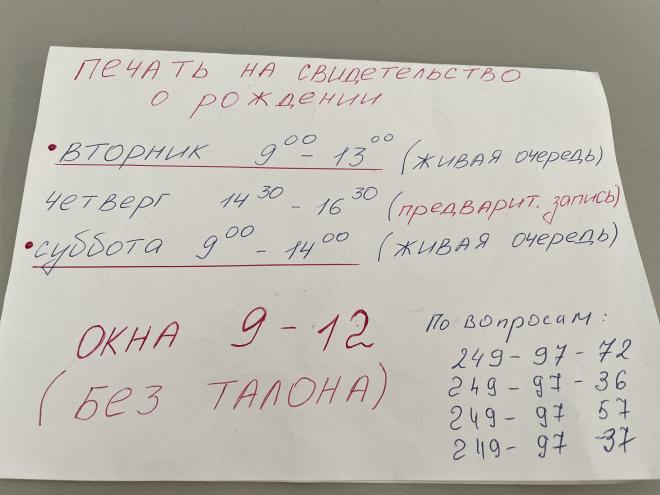 ПЕЧАТЬ НА СВИДЕТЕЛЬСТВО
О РОЖДЕНИИ
• ВТОРНИК 9⁰⁰ - 13⁰⁰ (ЖИВАЯ ОЧЕРЕДЬ)
ЧЕТВЕРГ 14³⁰ - 16³⁰ (ПРЕДВАРИТ. ЗАПИСЬ)
• СУББОТА 9⁰⁰ - 14⁰⁰ (ЖИВАЯ ОЧЕРЕДЬ)
ОКНА 9 - 12
(БЕЗ ТАЛОНА)
По вопросам:
249 - 97 - 72
249 - 97 - 36
249 - 97 57
249 - 97 -37